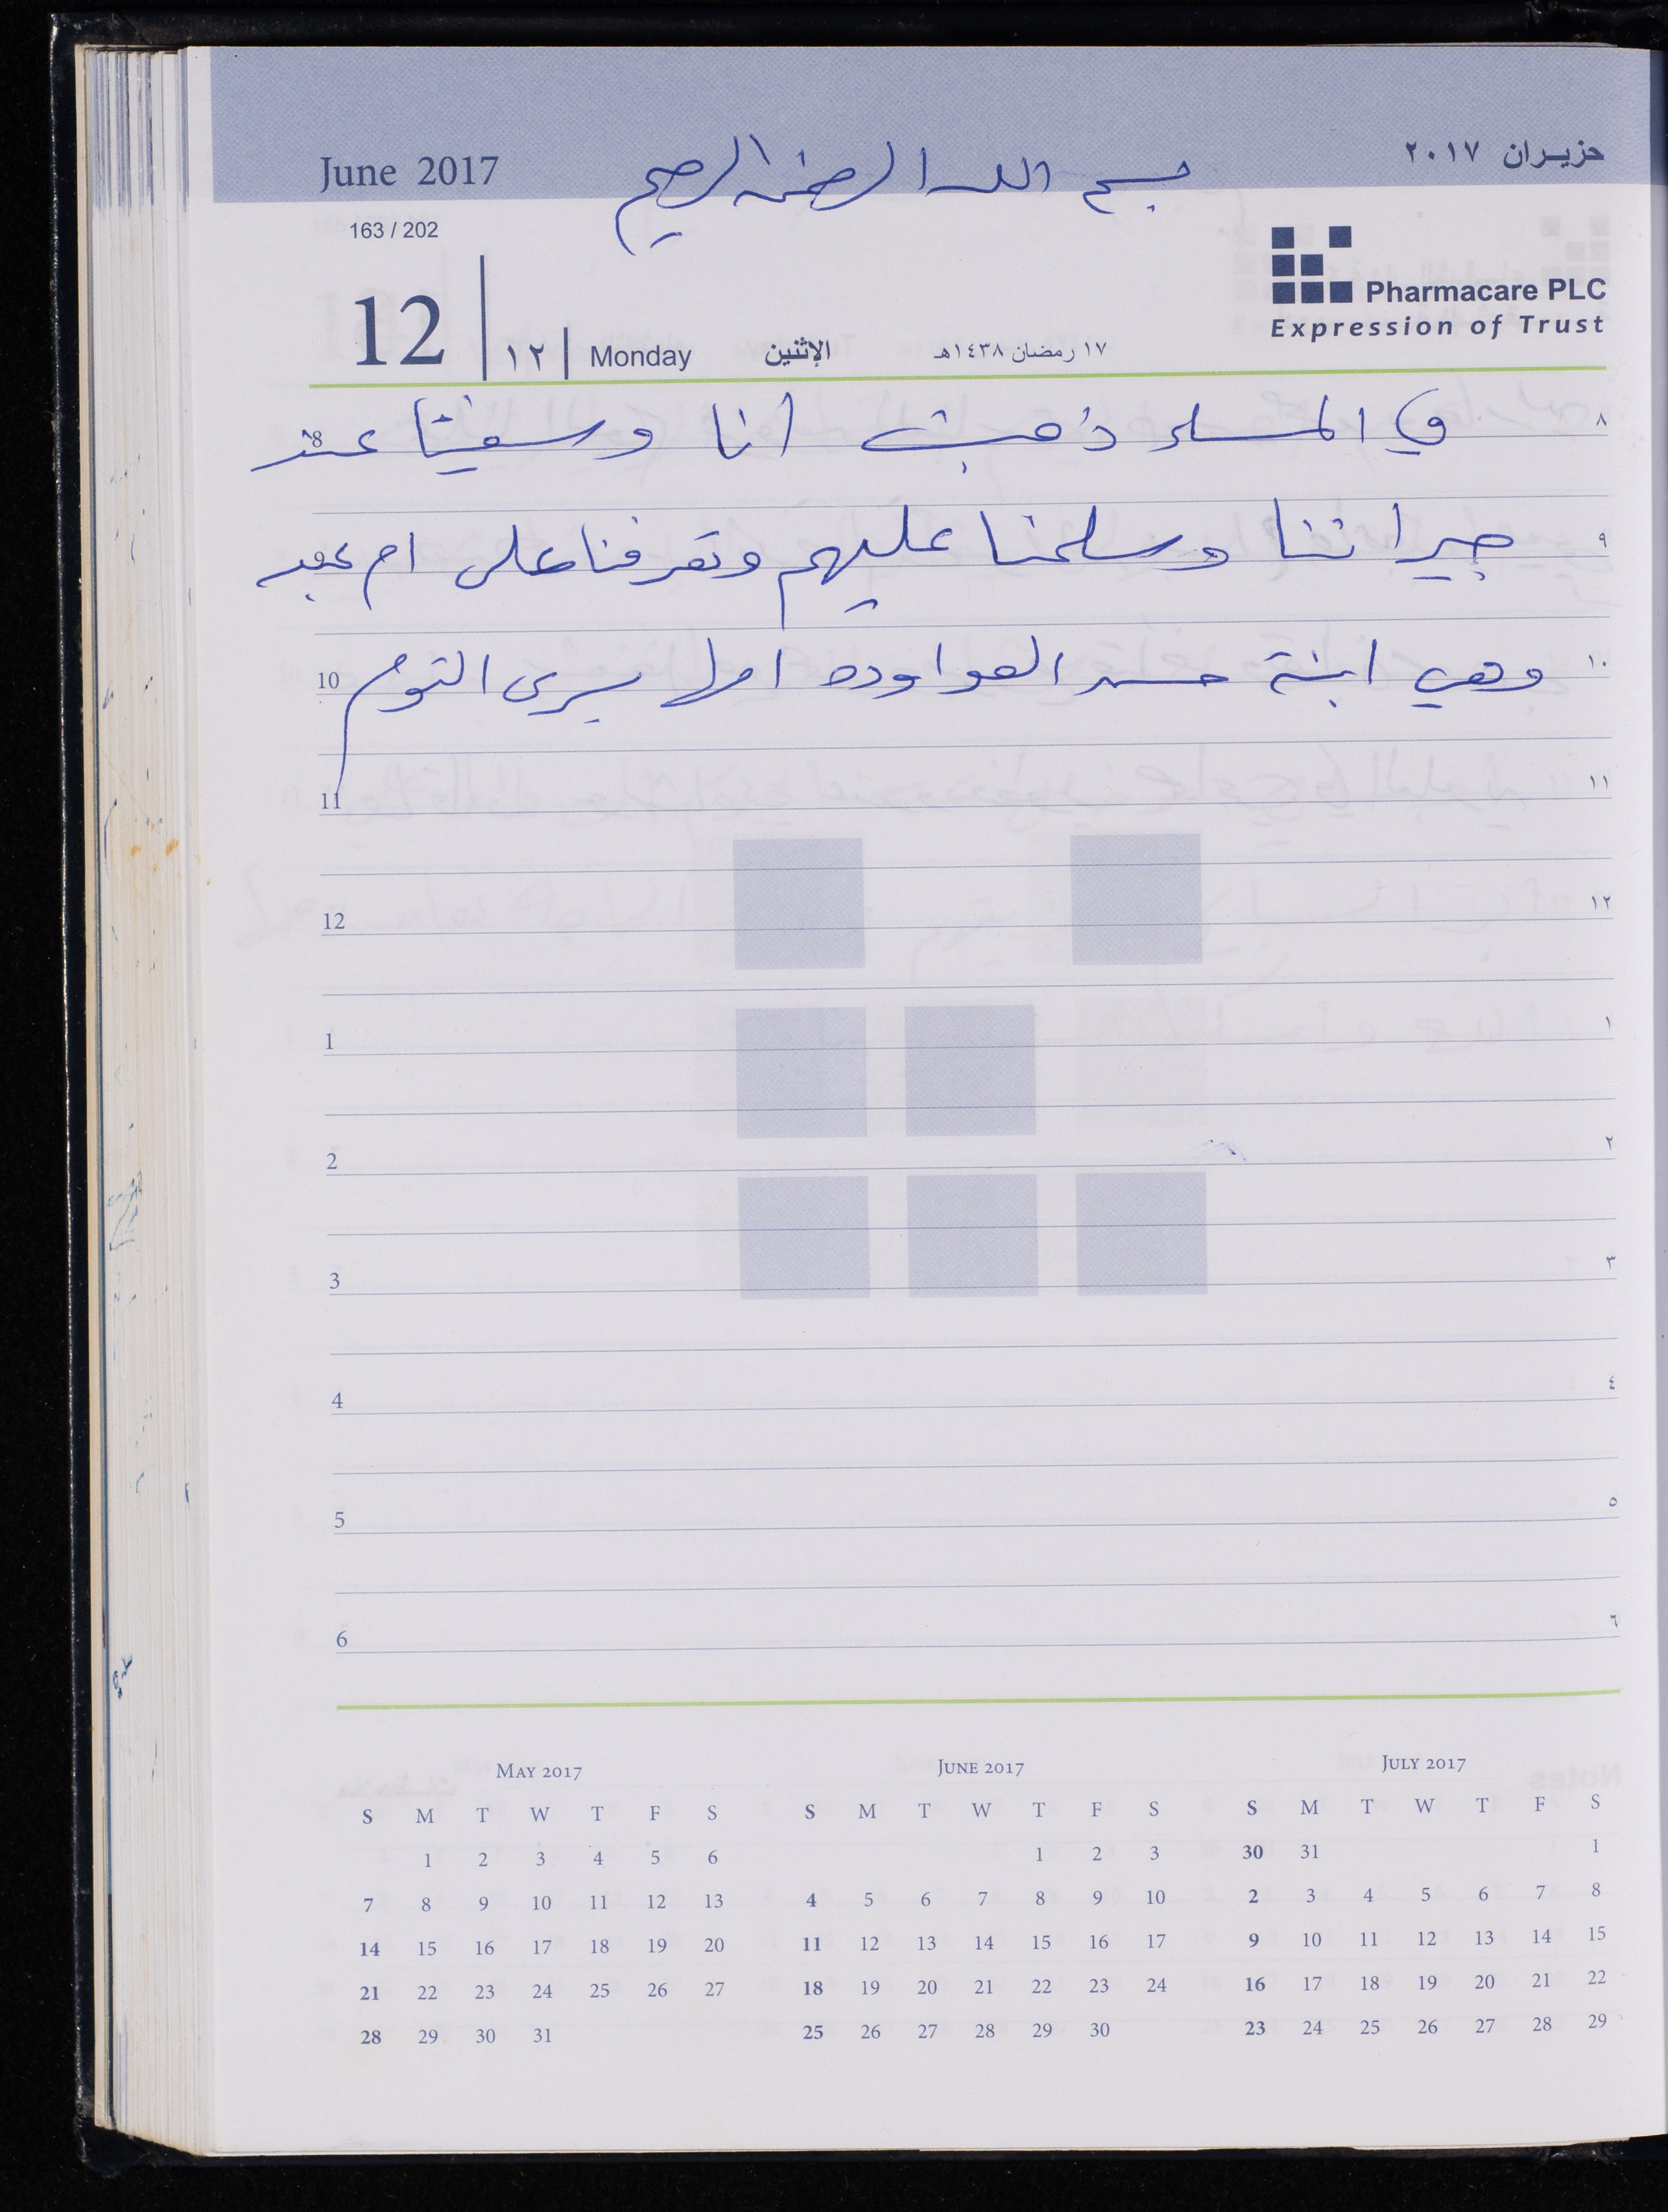 June 2017
بسم الله الرحمن الرحيم
حزيران ٢٠١٧
163 / 202
Pharmacare PLC
Expression of Trust
12 ١٢ Monday الإثنين ١٧ رمضان ١٤٣٨هـ
في المساء ذهبت أنا وسفيتا عند
8 ٨
جيراننا وسلمنا عليهم وتعرفنا على ام
٩
وهي ابنة حسن العواوده امها يسرى التوم
10 ١٠
11 ١١
12 ١٢
1 ١
2 ٢
3 ٣
4 ٤
5 ٥
6 ٦
MAY 2017
S M T W T F S
1 2 3 4 5 6
7 8 9 10 11 12 13
14 15 16 17 18 19 20
21 22 23 24 25 26 27
28 29 30 31
JUNE 2017
S M T W T F S
1 2 3
4 5 6 7 8 9 10
11 12 13 14 15 16 17
18 19 20 21 22 23 24
25 26 27 28 29 30
JULY 2017
S M T W T F S
30 31 1
2 3 4 5 6 7 8
9 10 11 12 13 14 15
16 17 18 19 20 21 22
23 24 25 26 27 28 29